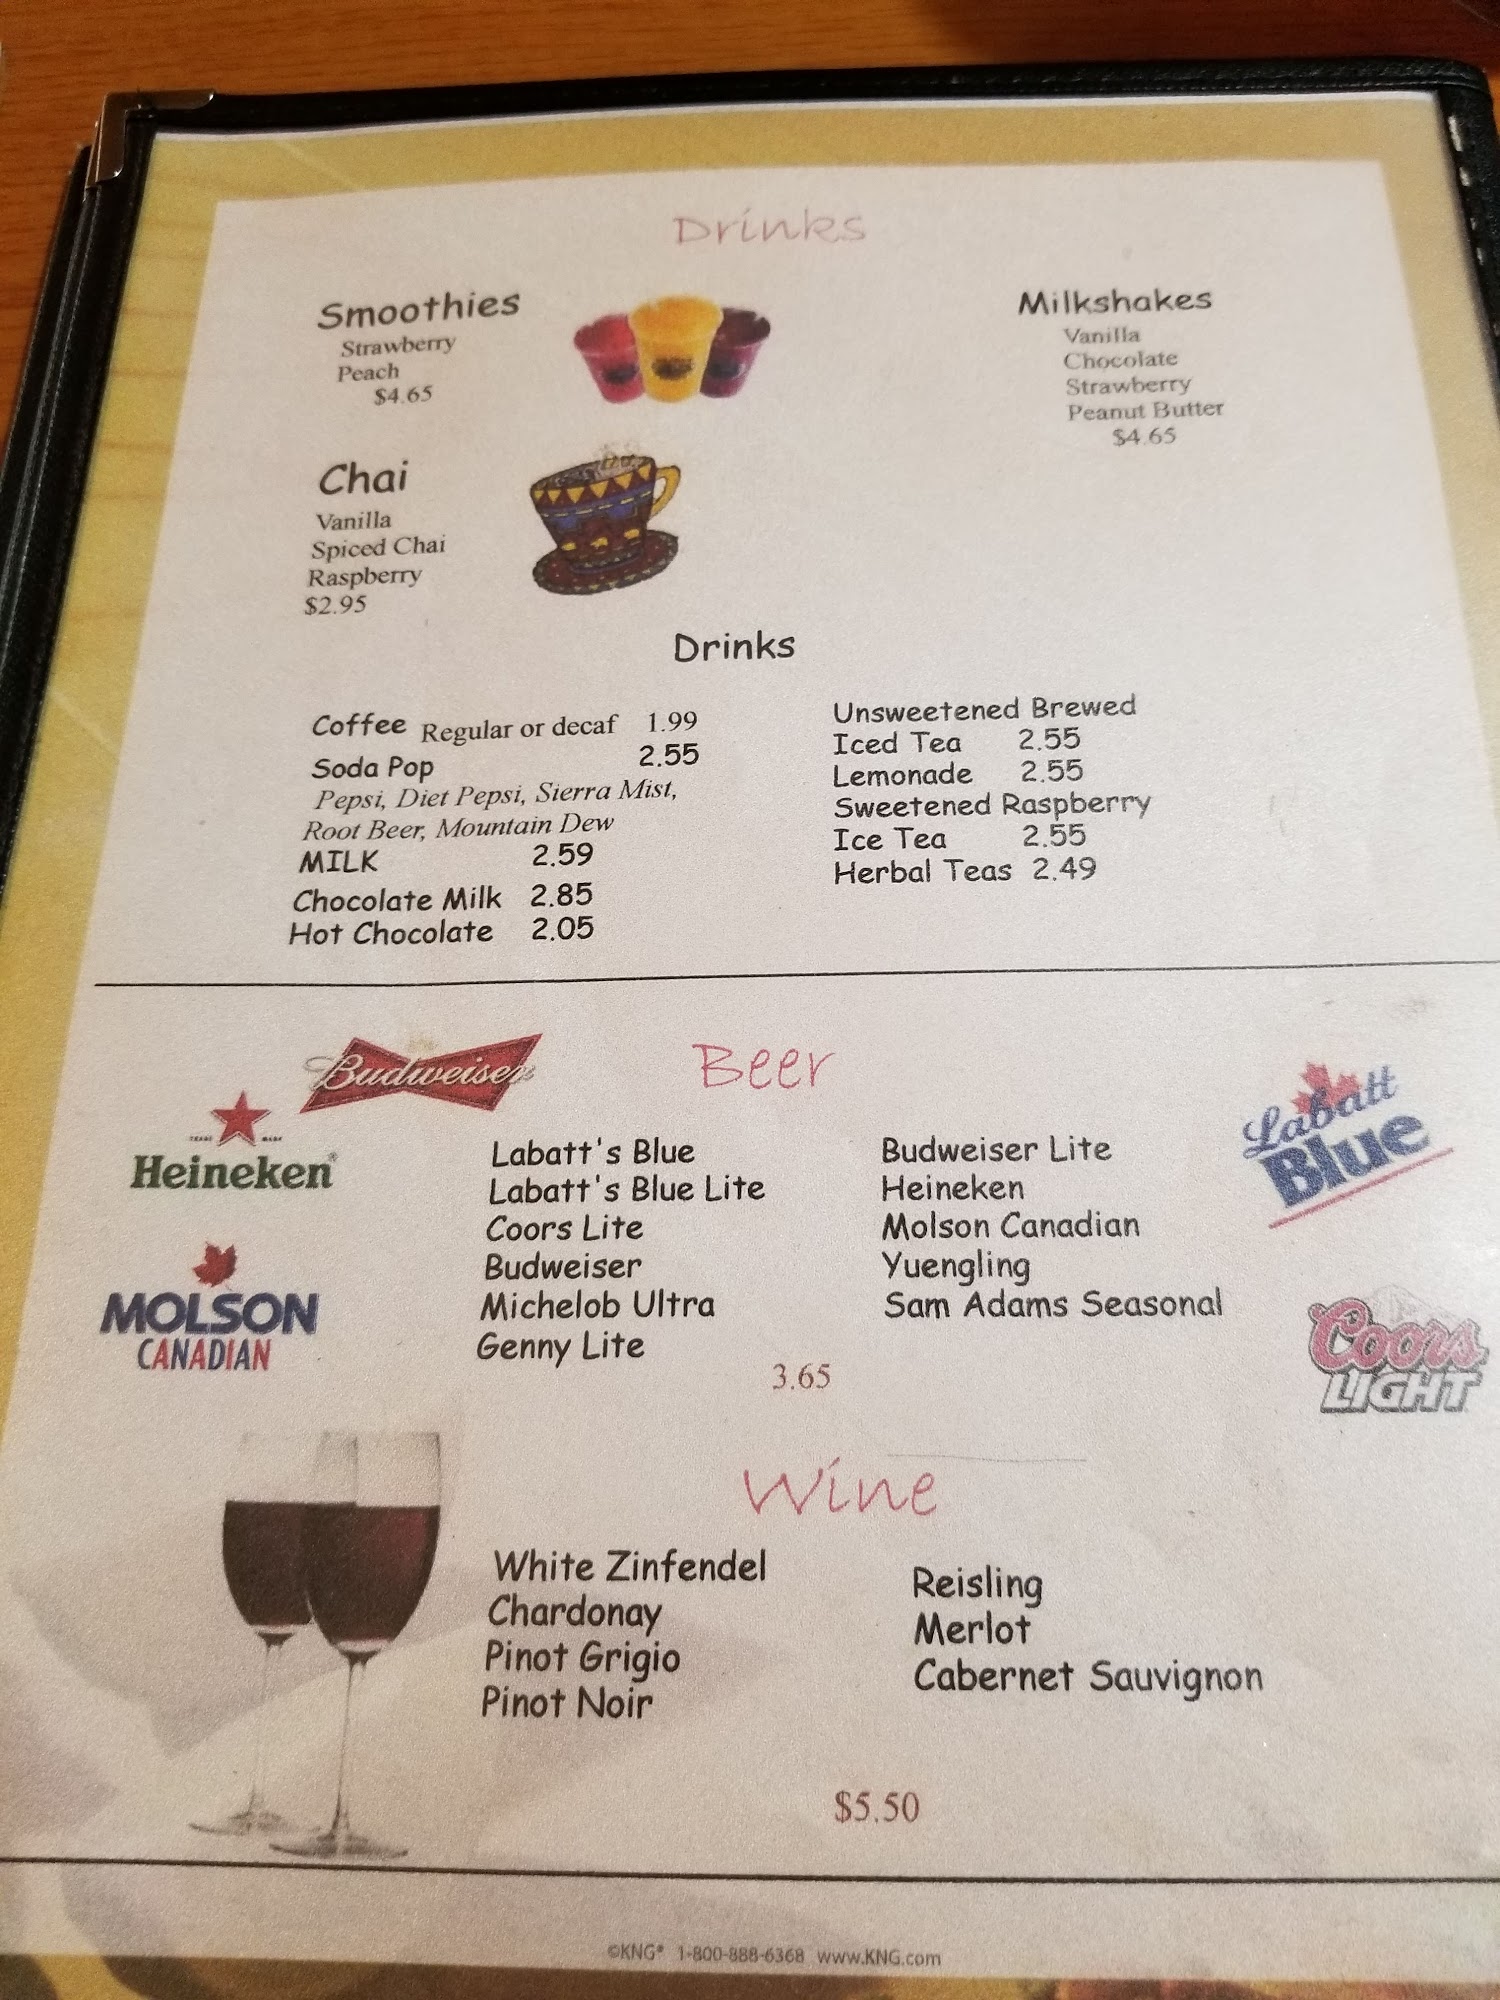 Drinks
Smoothies
Strawberry
Peach
$4.65
Milkshakes
Vanilla
Chocolate
Strawberry
Peanut Butter
$4.65
Chai
Vanilla
Spiced Chai
Raspberry
$2.95
Drinks
Coffee Regular or decaf 1.99
Soda Pop 2.55
Pepsi, Diet Pepsi, Sierra Mist,
Root Beer, Mountain Dew
MILK 2.59
Chocolate Milk 2.85
Hot Chocolate 2.05
Unsweetened Brewed
Iced Tea 2.55
Lemonade 2.55
Sweetened Raspberry
Ice Tea 2.55
Herbal Teas 2.49
Beer
Budweiser
TRADE MARK
Heineken
MOLSON
CANADIAN
Labatt's Blue
Labatt's Blue Lite
Coors Lite
Budweiser
Michelob Ultra
Genny Lite
Budweiser Lite
Heineken
Molson Canadian
Yuengling
Sam Adams Seasonal
3.65
Labatt
Blue
Coors
LIGHT
Wine
White Zinfendel
Chardonay
Pinot Grigio
Pinot Noir
Reisling
Merlot
Cabernet Sauvignon
$5.50
©KNG® 1-800-888-6368 www.KNG.com